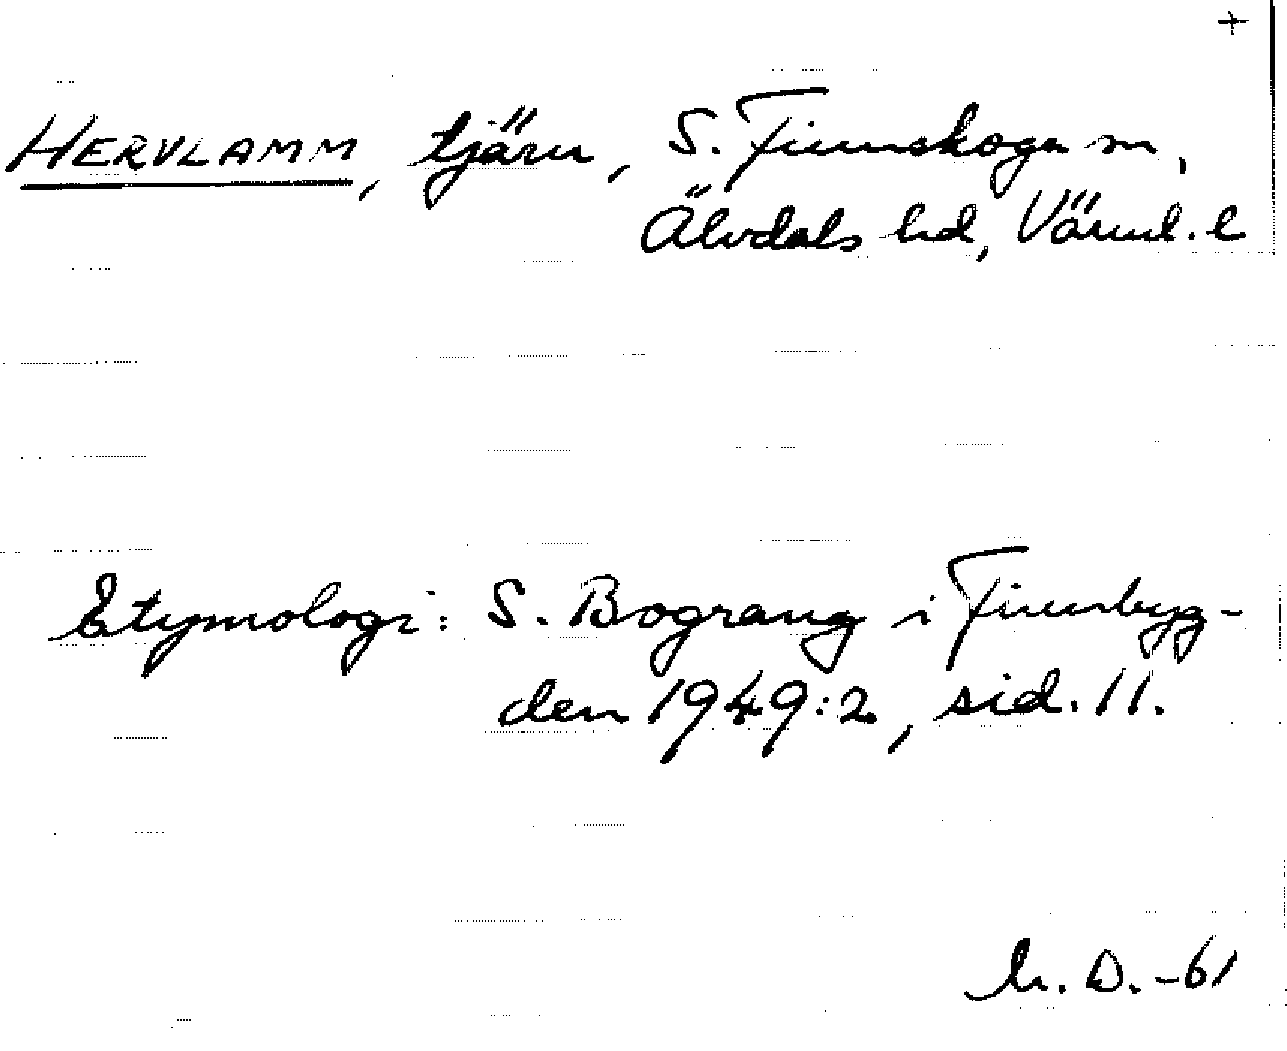 +
HERVLAMM, tjärn, S. Finnskoga sn,
Älvdals hd, Värml. l
Etymologi: S. Bograng i Finnbyg-
den 1949:2, sid. 11.
D. -61